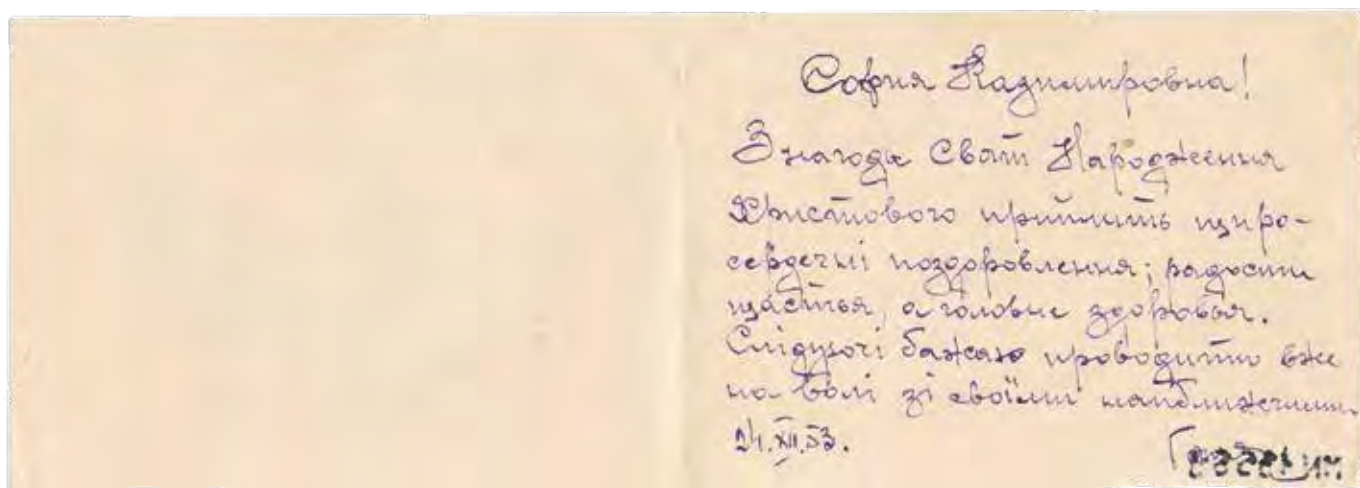 София Кадимировна!
З нагоди Свят Народження
Христового прийміть щиро-
сердечні поздоровлення; радости
щастья, а головне здоровья.
Слідуючі бажаю проводити вже
на волі зі своїми найближчими.
24.XII.53.